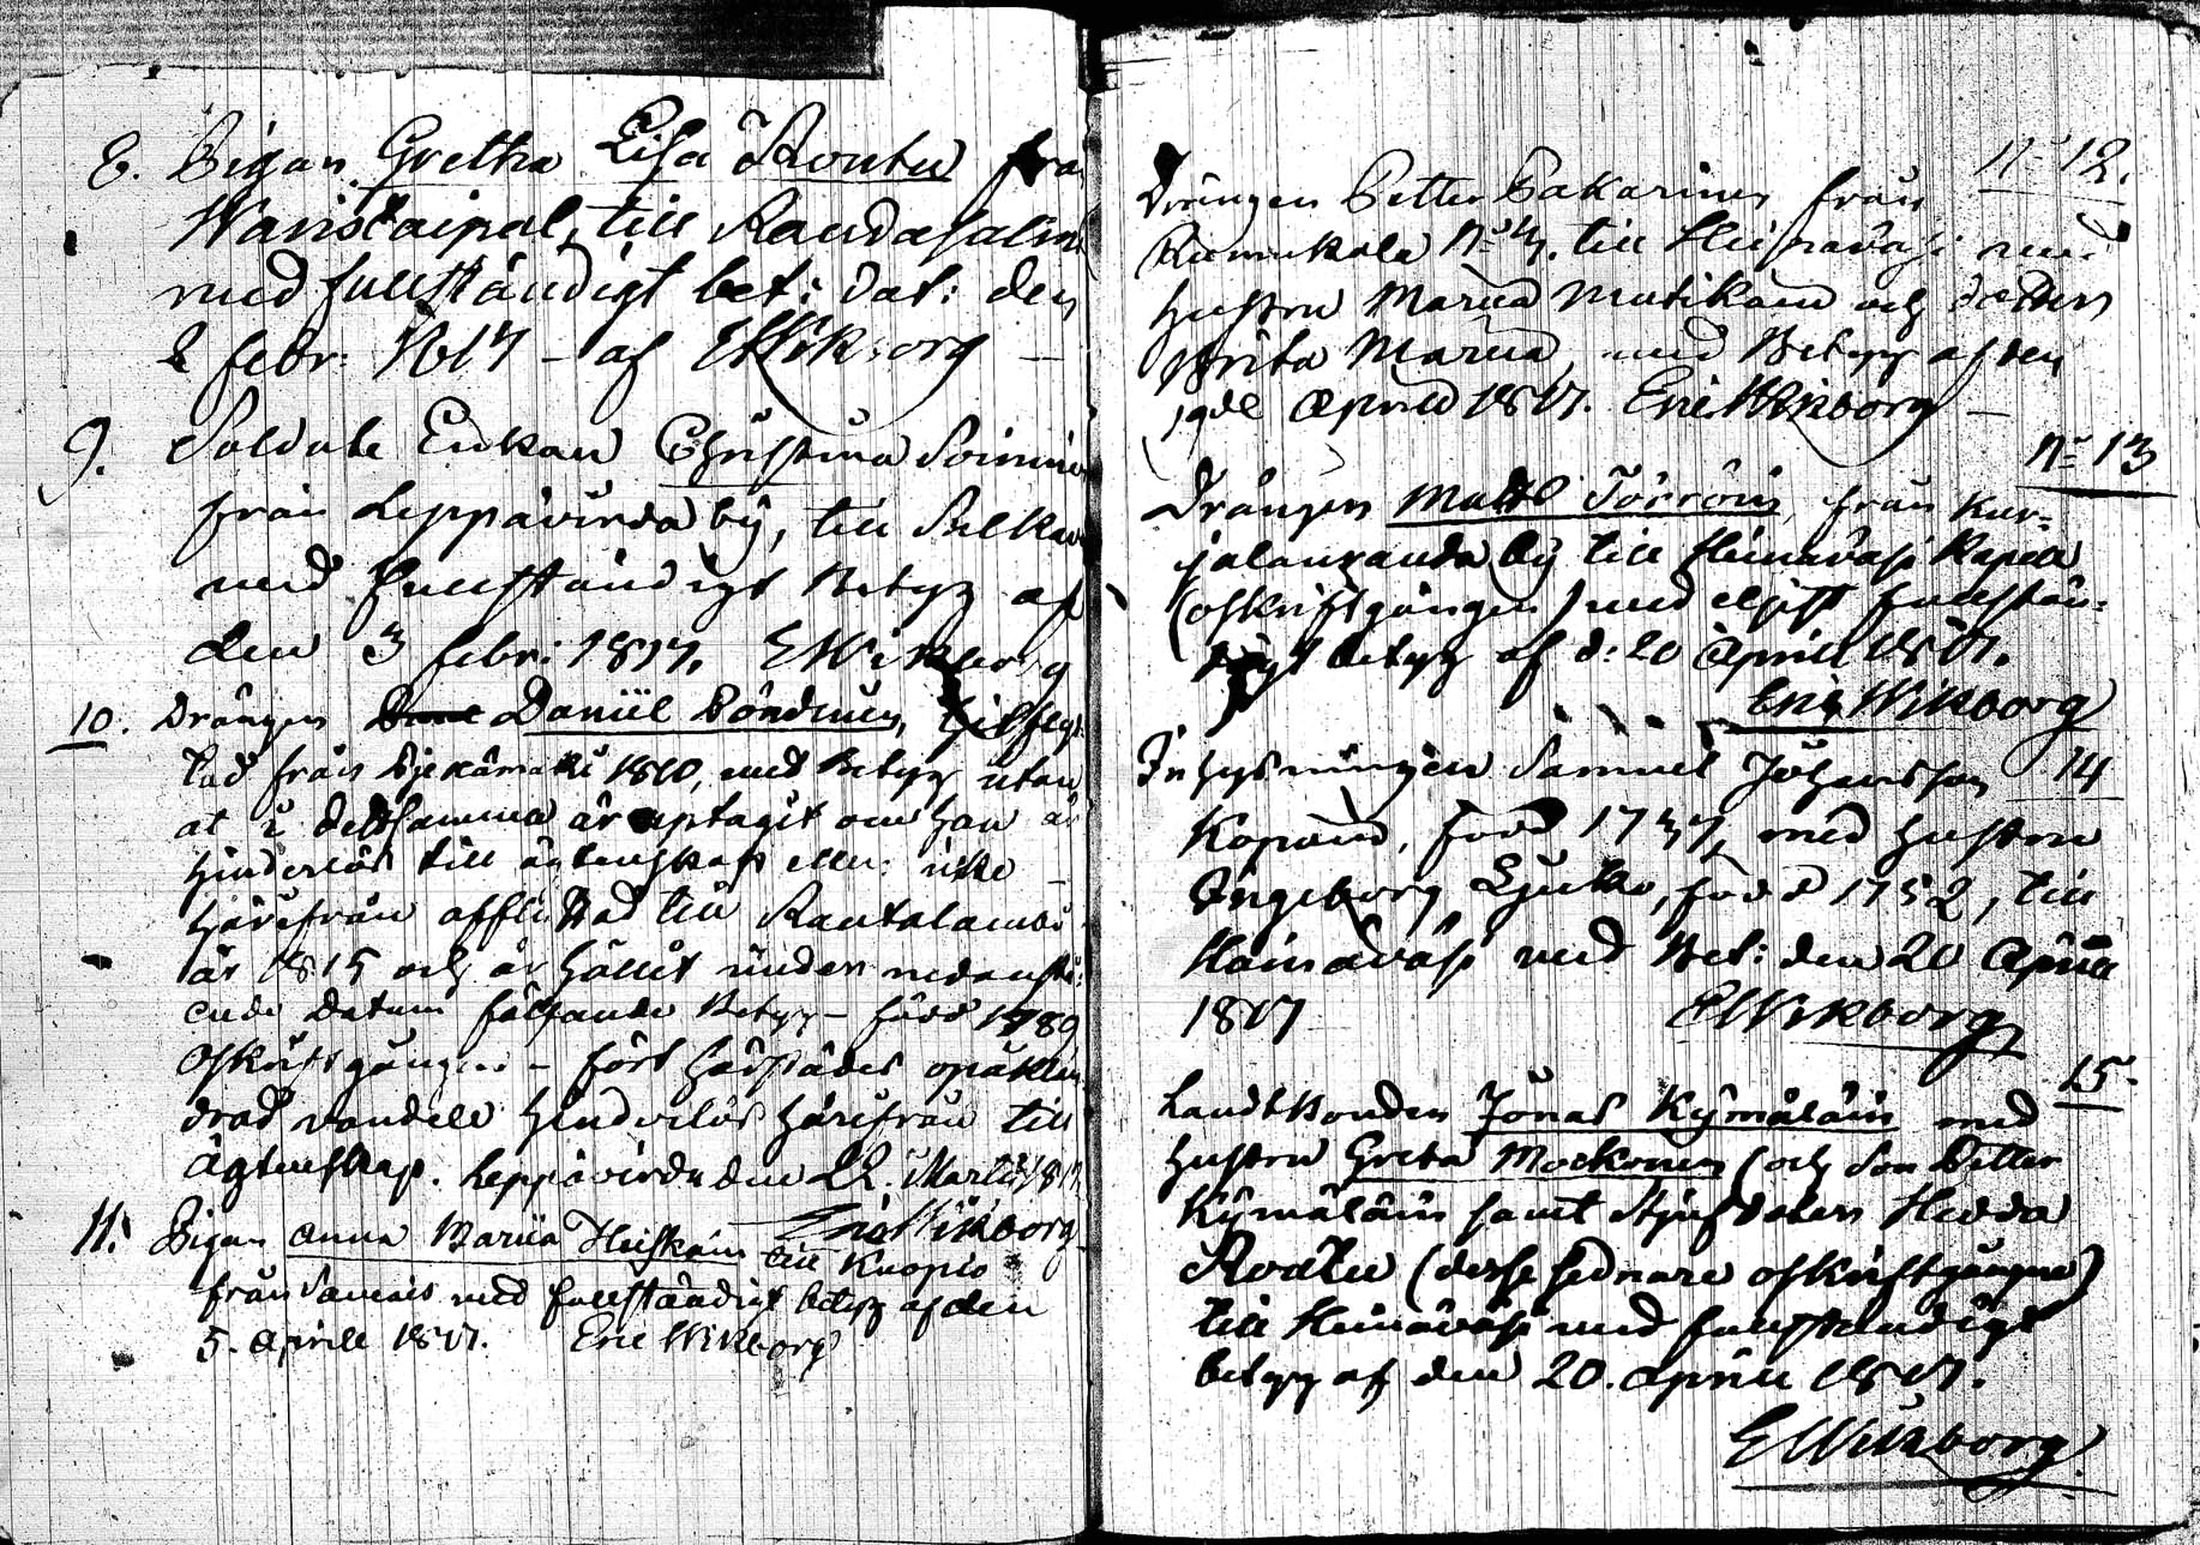 8. Pigan Gretha Lisa Routu från
till Randasalmi
med fullständigt bet: dat: den
2 febr: 1817 – af EWikborg –
9. Soldate Enkan Christina Soininen
från Leppävirda by, till Sulkava
med fullständigt Betyg af
den 3 febr: 1817. EWikborg
10. Drängen Daniel Pöndinen, hitflyt
tad från 1810, med Betyg, utan
at i detsamma är uptagit om han är
hinderlös till ägtenskap eller icke –
härifrån afflyttad till Rautalambi
år 1815 och är hållit under nedanstå:
ende datum följande Betyg – född 1789
Oskriftgången – fört härstädes opåklan
drad vandel hinderlös härifrån till
ägtenskap. Leppävirda den 22. Martii 1817
Eric Wikborg
11. Pigan Anna Maria Heiskain till Kuopio
från Saamais med fullständigt betyg af den
5. Aprill 1817. Eric Wikborg
No 12.
Drängen Petter Pakarinen från
No 4. till Heinäväsi med
hustru Maria Mutikain och dottren
Brita Maria, med Betyg af den
19de April 1817. Eric Wikborg –
No 13
Drängen Matts Törröin, från Kur=
jalanranda by till Heinäväsi Kapell
(oskriftgången) med eljest fullstän:
digt betyg af d: 20 April 1817.
Eric Wikborg
14
Inhysningen Samuel Johansson
Kopoin, född 1747, med hustru
Ingeborg, född 1752, till
Heinäväsi med Bet: den 20 April
1817 EWikborg
15.
Landbonden Jonas Kymäläin med
hustru Greta Mockonen (och Son Petter
Kymäläin samt Styfdotern Hedda
(desse sednare oskriftgångna)
till Heinäväsi med fullständigt
betyg af den 20. April 1817.
EWikborg